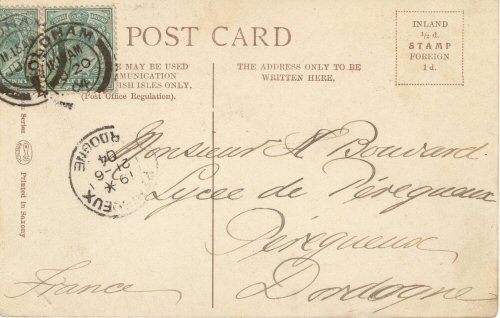 POST CARD
E MAY BE USED
MMUNICATION
ISH ISLES ONLY.
(Post Office Regulation).
THE ADDRESS ONLY TO BE
WRITTEN HERE.
INLAND
½ d.
STAMP
FOREIGN
1 d.
Series
Printed in Saxony
DORDOGNE
19
21-6
04
Monsieur A Bouvard.
Lycee de Périgueux
Périgueux
Dordogne
France